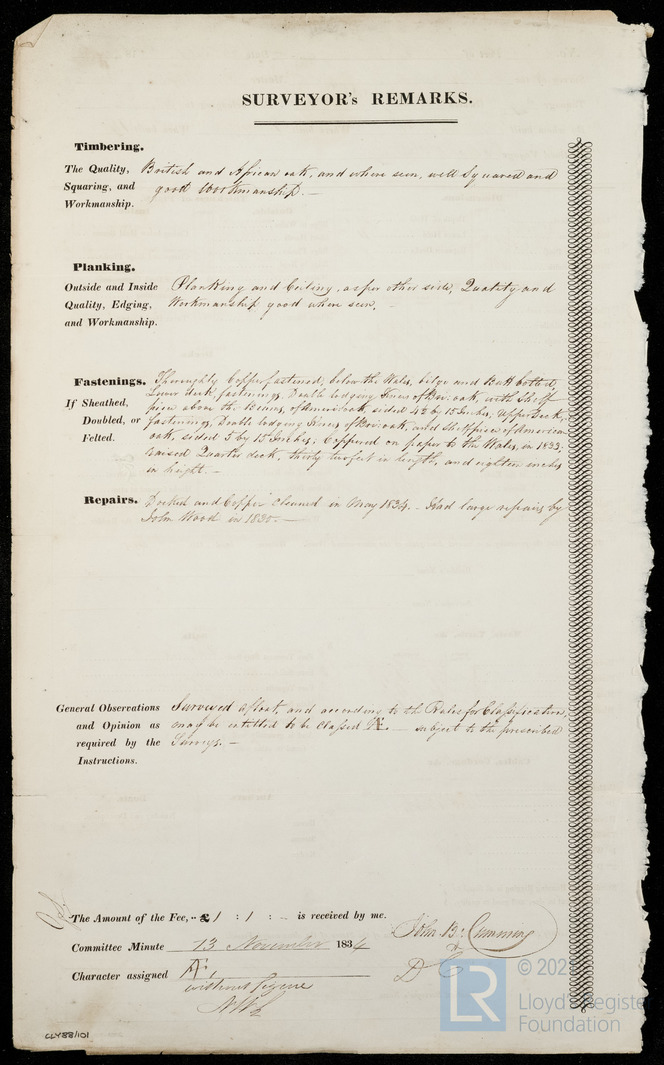 SURVEYOR's REMARKS.
Timbering.
The Quality, British and African oak, and where seen, well Squared and
Squaring, and good Workmanship. —
Workmanship.
Planking.
Outside and Inside Planking and Ceiling, as per other side, Quality and
Quality, Edging, Workmanship good where seen. —
and Workmanship.
Fastenings. Thoroughly Copper fastened, below the Wales, bilge and Butt bolted,
If Sheathed, Lower deck, fastenings, Double lodging Knees of Bri: oak, with Shelf
Doubled, or piece above the Beams, of Ameri: oak, sided 4½ by 15 Inches, Upper Deck,
Felted. fastenings, Double lodging Knees of Bri: oak, and Shelf piece of American
oak, sided 5 by 15 Inches; Coppered on paper to the Wales, in 1833;
raised Quarter deck, thirty two feet in length, and eighteen inches
in height. —
Repairs. Docked and Copper Cleaned in May 1834. — Had large repairs by
John Wood in 1830. —
General Observations Surveyed afloat, and according to the Rules for Classification,
and Opinion as may be entitled to be Classed Æ. — subject to the prescribed
required by the Surveys. —
Instructions.
The Amount of the Fee, -- £ 1 : 1 : - is received by me.
John B: Cumming
Committee Minute 13 November 1834
Character assigned Æ1
without figure
CLY88/101
LR
© 202
Lloyd's Register
Foundation